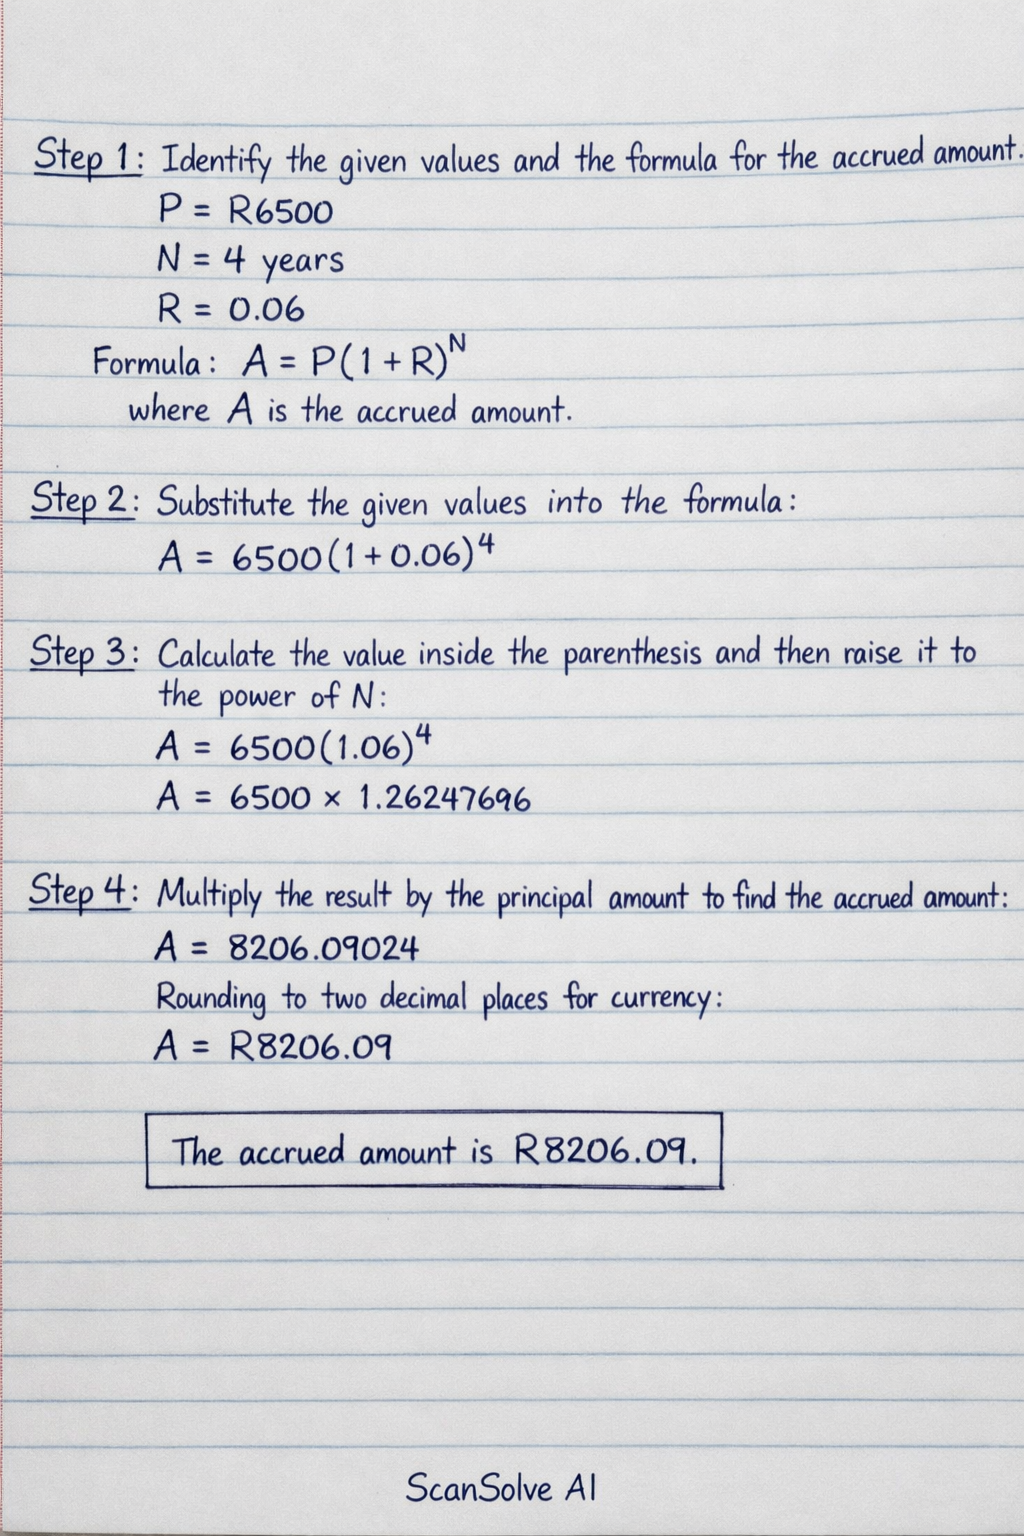 Step 1: Identify the given values and the formula for the accrued amount.
P = R6500
N = 4 years
R = 0.06
Formula: A = P(1 + R)^N
where A is the accrued amount.
Step 2: Substitute the given values into the formula:
A = 6500(1 + 0.06)^4
Step 3: Calculate the value inside the parenthesis and then raise it to
the power of N:
A = 6500(1.06)^4
A = 6500 × 1.26247696
Step 4: Multiply the result by the principal amount to find the accrued amount:
A = 8206.09024
Rounding to two decimal places for currency:
A = R8206.09
The accrued amount is R8206.09.
ScanSolve AI